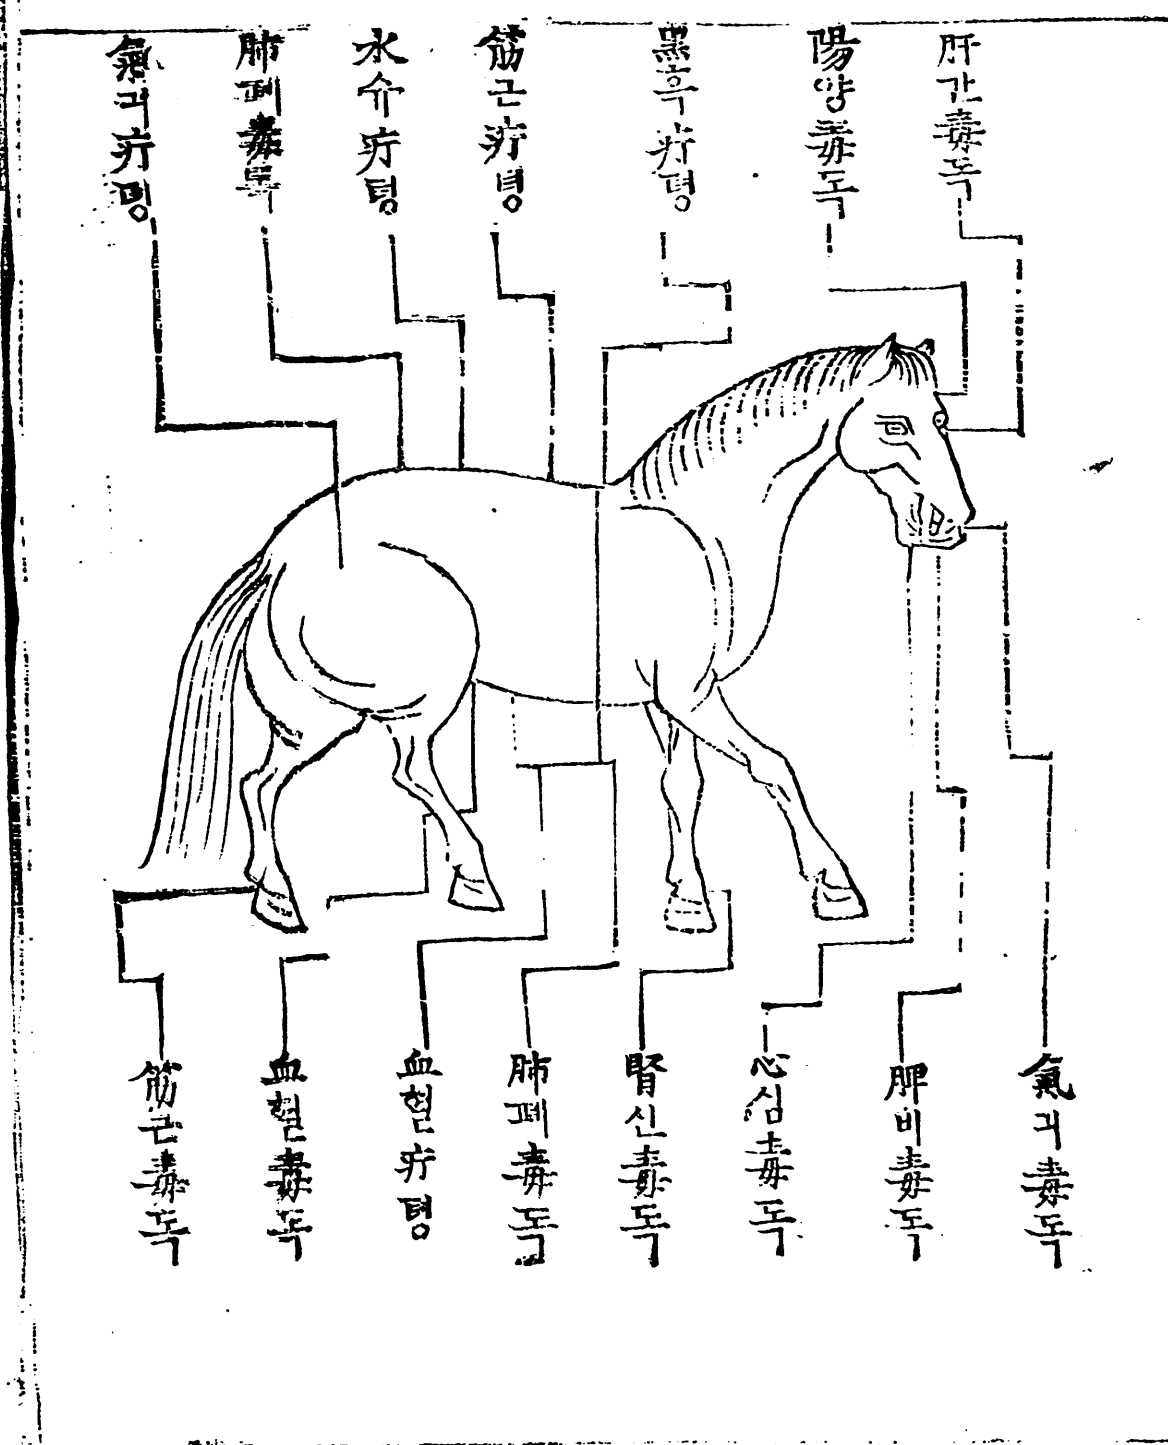 肝간毒독
陽양毒독
黑흑疔뎡
筋근疔뎡
水슈疔뎡
肺폐毒독
氣긔疔뎡
氣긔毒독
脾비毒독
心심毒독
腎신毒독
肺폐毒독
血혈疔뎡
血혈毒독
筋근毒독